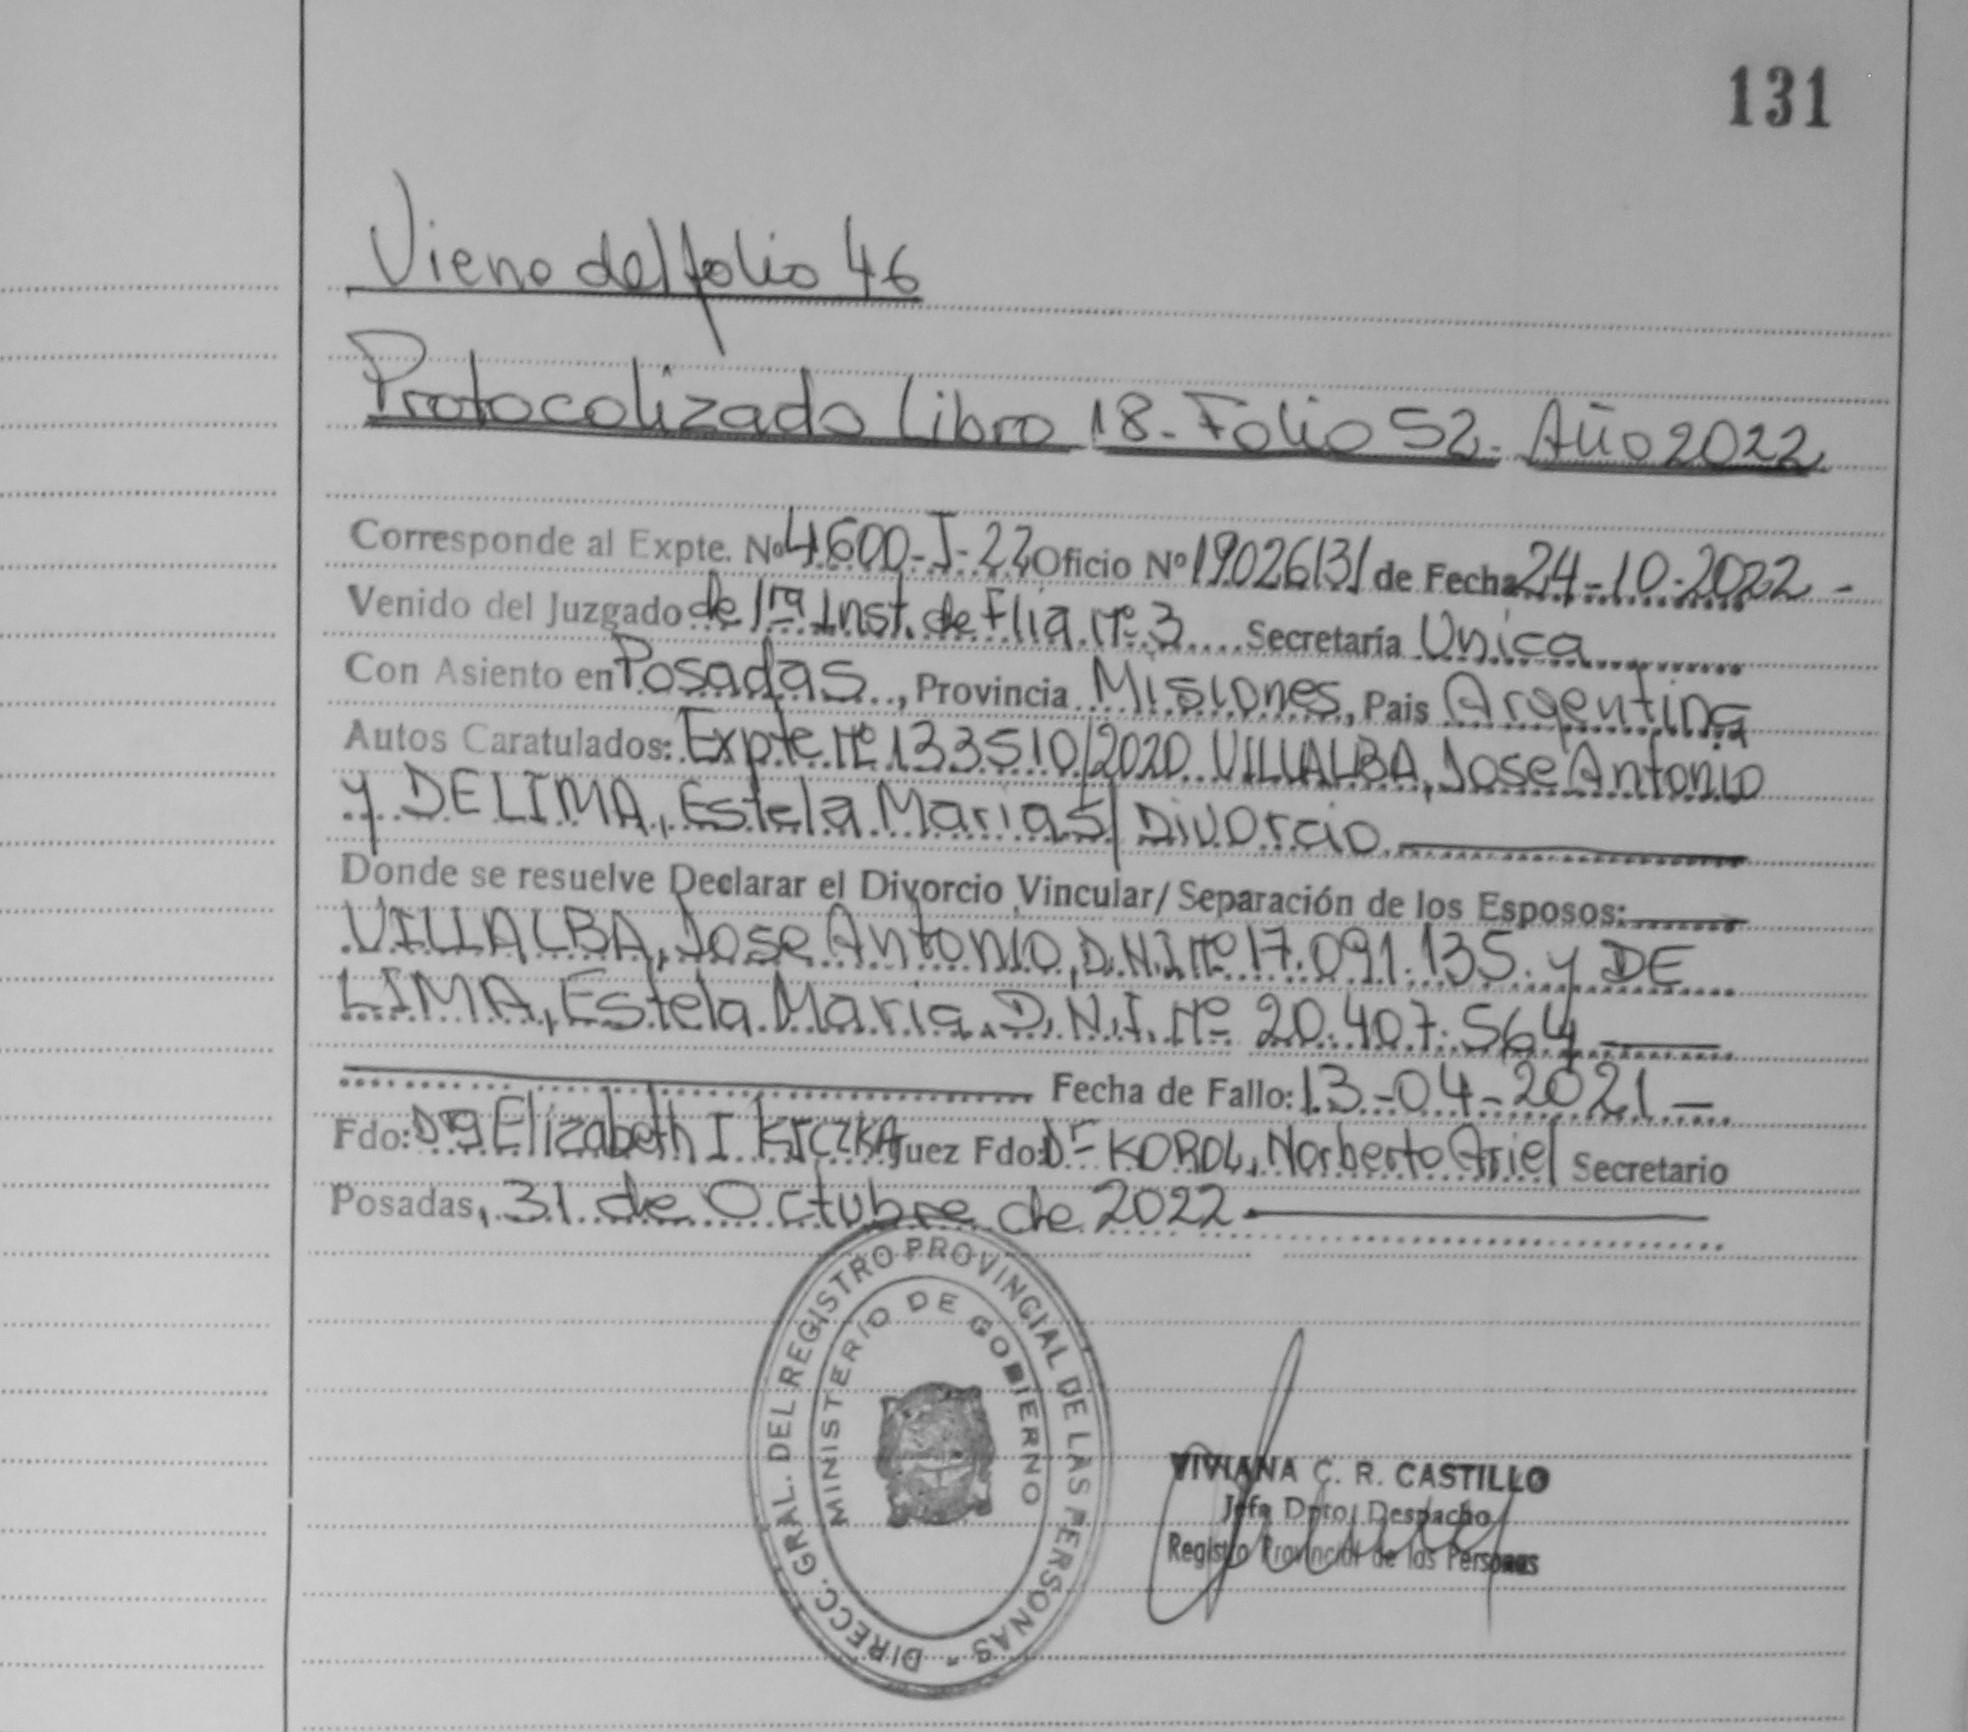 131
Viene del folio 46
Protocolizado Libro 18. Folio 52. Año 2022
Corresponde al Expte. Nº 4600-J-22 Oficio Nº 19026131 de Fecha 24-10-2022 -
Venido del Juzgado de 1ra Inst. de Flia. Nº 3 Secretaría Unica
Con Asiento en Posadas, Provincia Misiones, Pais Argentina
Autos Caratulados: Expte Nº 133510/2020 VILLALBA, Jose Antonio
y DE LIMA, Estela Maria s/ Divorcio
Donde se resuelve Declarar el Divorcio Vincular/ Separación de los Esposos:
VILLALBA, Jose Antonio, D.N.I Nº 17.091.135. y DE
LIMA, Estela Maria. D.N.I. Nº 20.407.564
Fecha de Fallo: 13-04-2021 -
Fdo: Dra Elizabeth I KICZKA Juez Fdo: Dr KOROL, Norberto Ariel Secretario
Posadas, 31 de Octubre de 2022
DIRECC. GRAL. DEL REGISTRO PROVINCIAL DE LAS PERSONAS -
MINISTERIO DE GOBIERNO
VIVIANA C. R. CASTILLO
Jefa Dpto. Despacho
Registro Provincial de las Personas